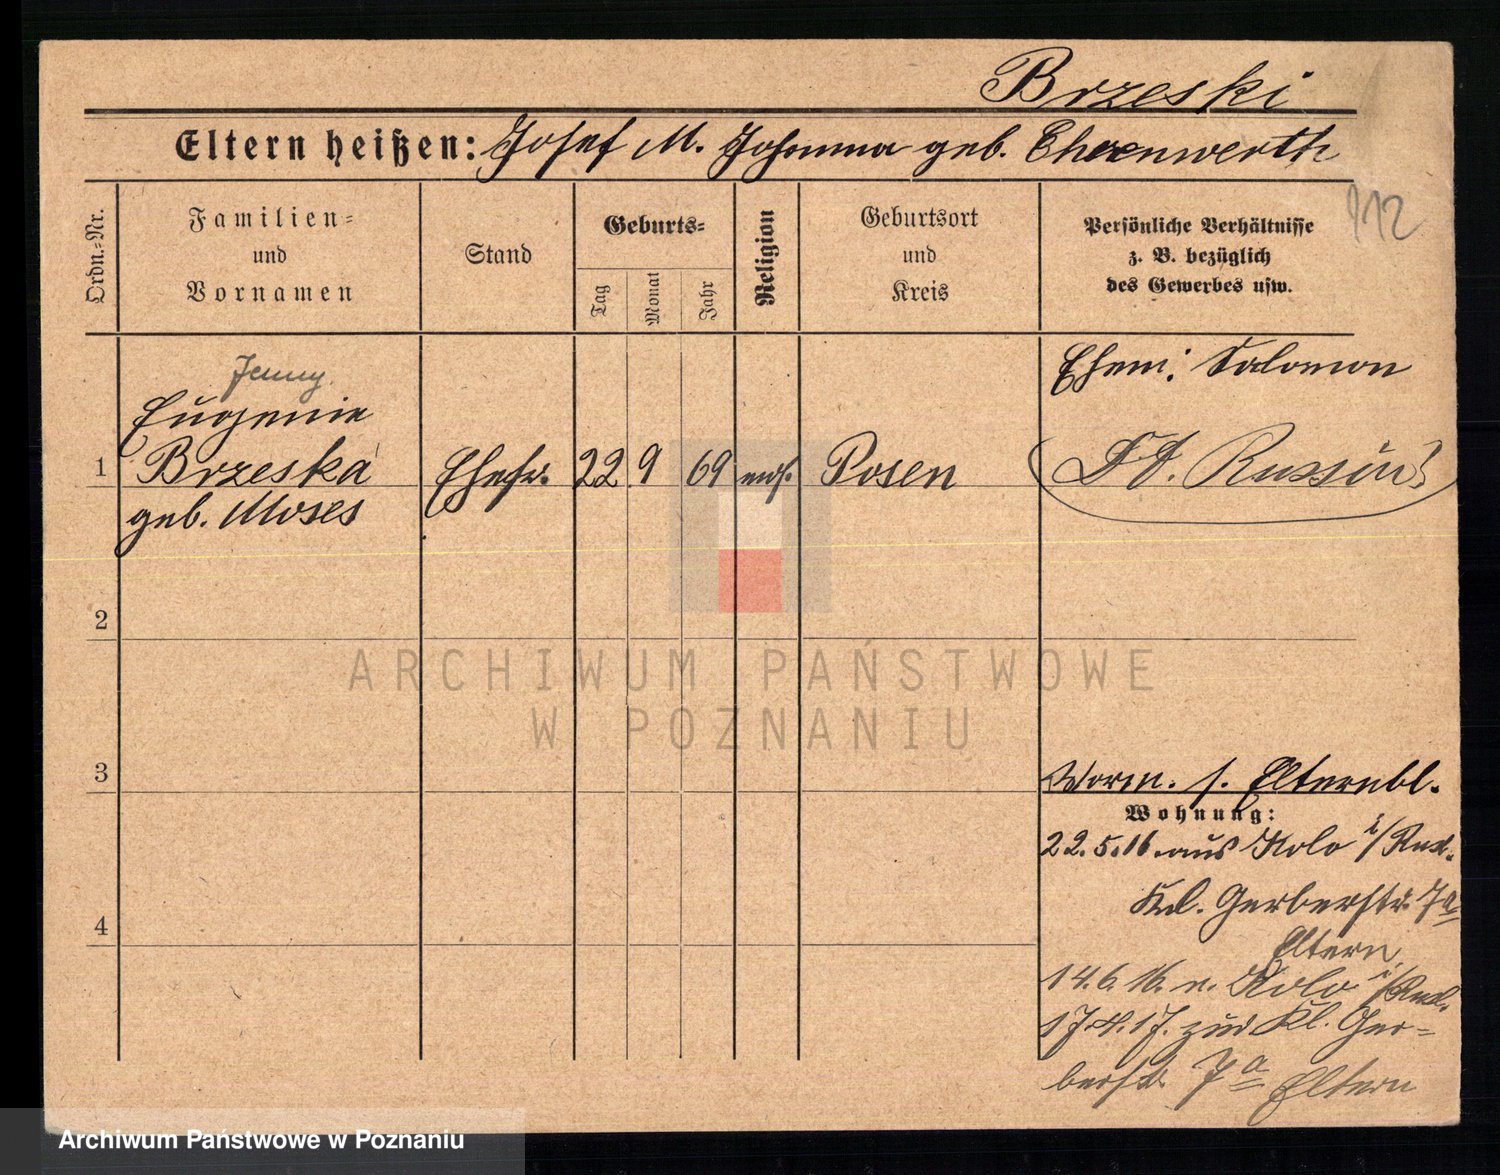 Brzeski
Eltern heißen: Josef M. Johanna geb. Ehrenwerth
112
Ordn.-Nr.
Familien-
und
Vornamen
Stand
Geburts-
Tag
Monat
Jahr
Religion
Geburtsort
und
Kreis
Persönliche Verhältnisse
z. B. bezüglich
des Gewerbes usw.
Jenny
Eugenie
1 Brzeska Ehefr. 22. 9 69 mos. Posen
geb. Moses
Ehem: Salomon
St. Russin
2
3
4
Vorm. s. Elternbl.
Wohnung:
22.5.16 aus Kolo i/Russ.
Kl. Gerberstr. 7a
Eltern
14.6.16. n. Kolo i/Russl.
17.4.17. zur Kl. Ger-
berstr. 7a Eltern
ARCHIWUM PAŃSTWOWE
W POZNANIU
Archiwum Państwowe w Poznaniu